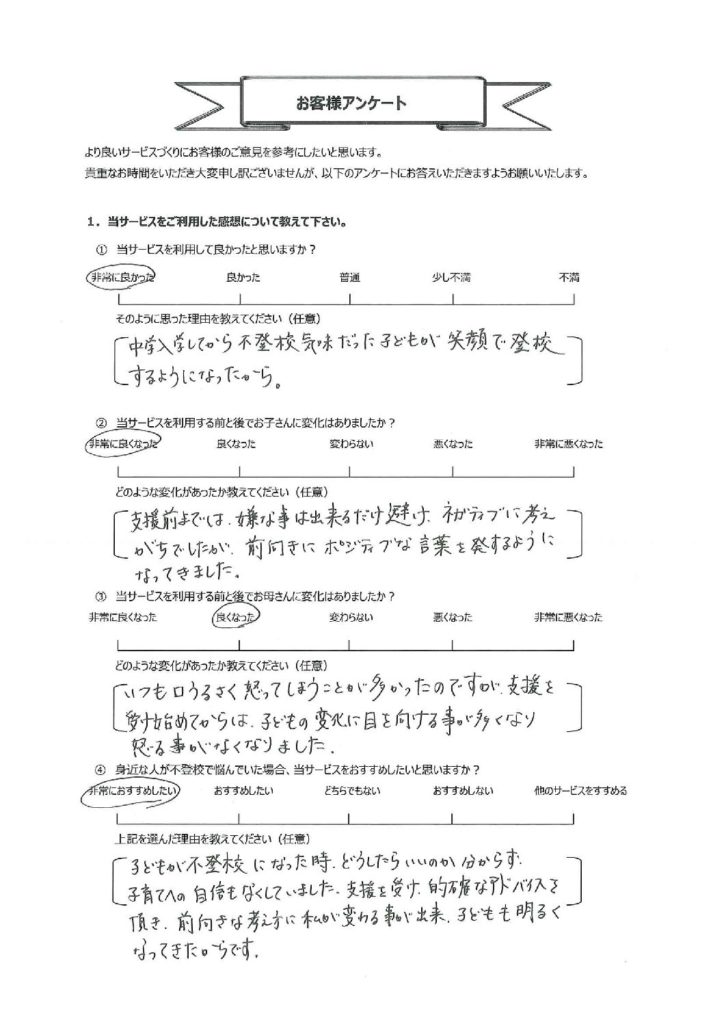 お客様アンケート
より良いサービスづくりにお客様のご意見を参考にしたいと思います。
貴重なお時間をいただき大変申し訳ございませんが、以下のアンケートにお答えいただきますようお願いいたします。
1．当サービスをご利用した感想について教えて下さい。
① 当サービスを利用して良かったと思いますか？
非常に良かった 良かった 普通 少し不満 不満
そのように思った理由を教えてください（任意）
中学入学してから不登校気味だった子どもが笑顔で登校
するようになったから。
② 当サービスを利用する前と後でお子さんに変化はありましたか？
非常に良くなった 良くなった 変わらない 悪くなった 非常に悪くなった
どのような変化があったか教えてください（任意）
支援前までは、嫌な事は出来るだけ避け、ネガティブに考え
がちでしたが、前向きにポジティブな言葉を発するように
なってきました。
③ 当サービスを利用する前と後でお母さんに変化はありましたか？
非常に良くなった 良くなった 変わらない 悪くなった 非常に悪くなった
どのような変化があったか教えてください（任意）
いつも口うるさく怒ってしまうことが多かったのですが、支援を
受け始めてからは、子どもの変化に目を向ける事が多くなり
怒る事がなくなりました。
④ 身近な人が不登校で悩んでいた場合、当サービスをおすすめしたいと思いますか？
非常におすすめしたい おすすめしたい どちらでもない おすすめしない 他のサービスをすすめる
上記を選んだ理由を教えてください（任意）
子どもが不登校になった時、どうしたらいいのか分からず、
子育てへの自信もなくしていました。支援を受け、的確なアドバイスを
頂き、前向きな考え方に私が変わる事が出来、子どもも明るく
なってきたからです。